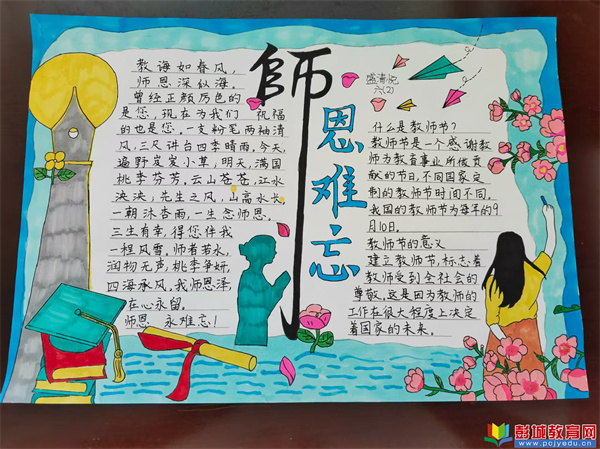 教诲如春风，
师恩深似海。
曾经正颜厉色的
是您，现在为我们祝福
的也是您。一支粉笔两袖清
风，三尺讲台四季晴雨。今天，
遍野岌岌小草，明天，满国
桃李芬芳。云山苍苍，江水
泱泱，先生之风，山高水长
一朝沐杏雨，一生念师恩。
三生有幸，得您伴我
一程风雪。师者若水，
润物无声，桃李争妍，
四海承风。我师恩泽，
在心永留。
师恩 永难忘！
師
恩
难
忘
六(2)
什么是教师节？
教师节是一个感谢教
师为教育事业所做贡
献的节日，不同国家定
制的教师节时间不同。
我国的教师节为每年的9
月10日。
教师节的意义
建立教师节，标志着
教师受到全社会的
尊敬。这是因为教师的
工作在很大程度上决定
着国家的未来。
彭城教育网
www.pcjyedu.cn